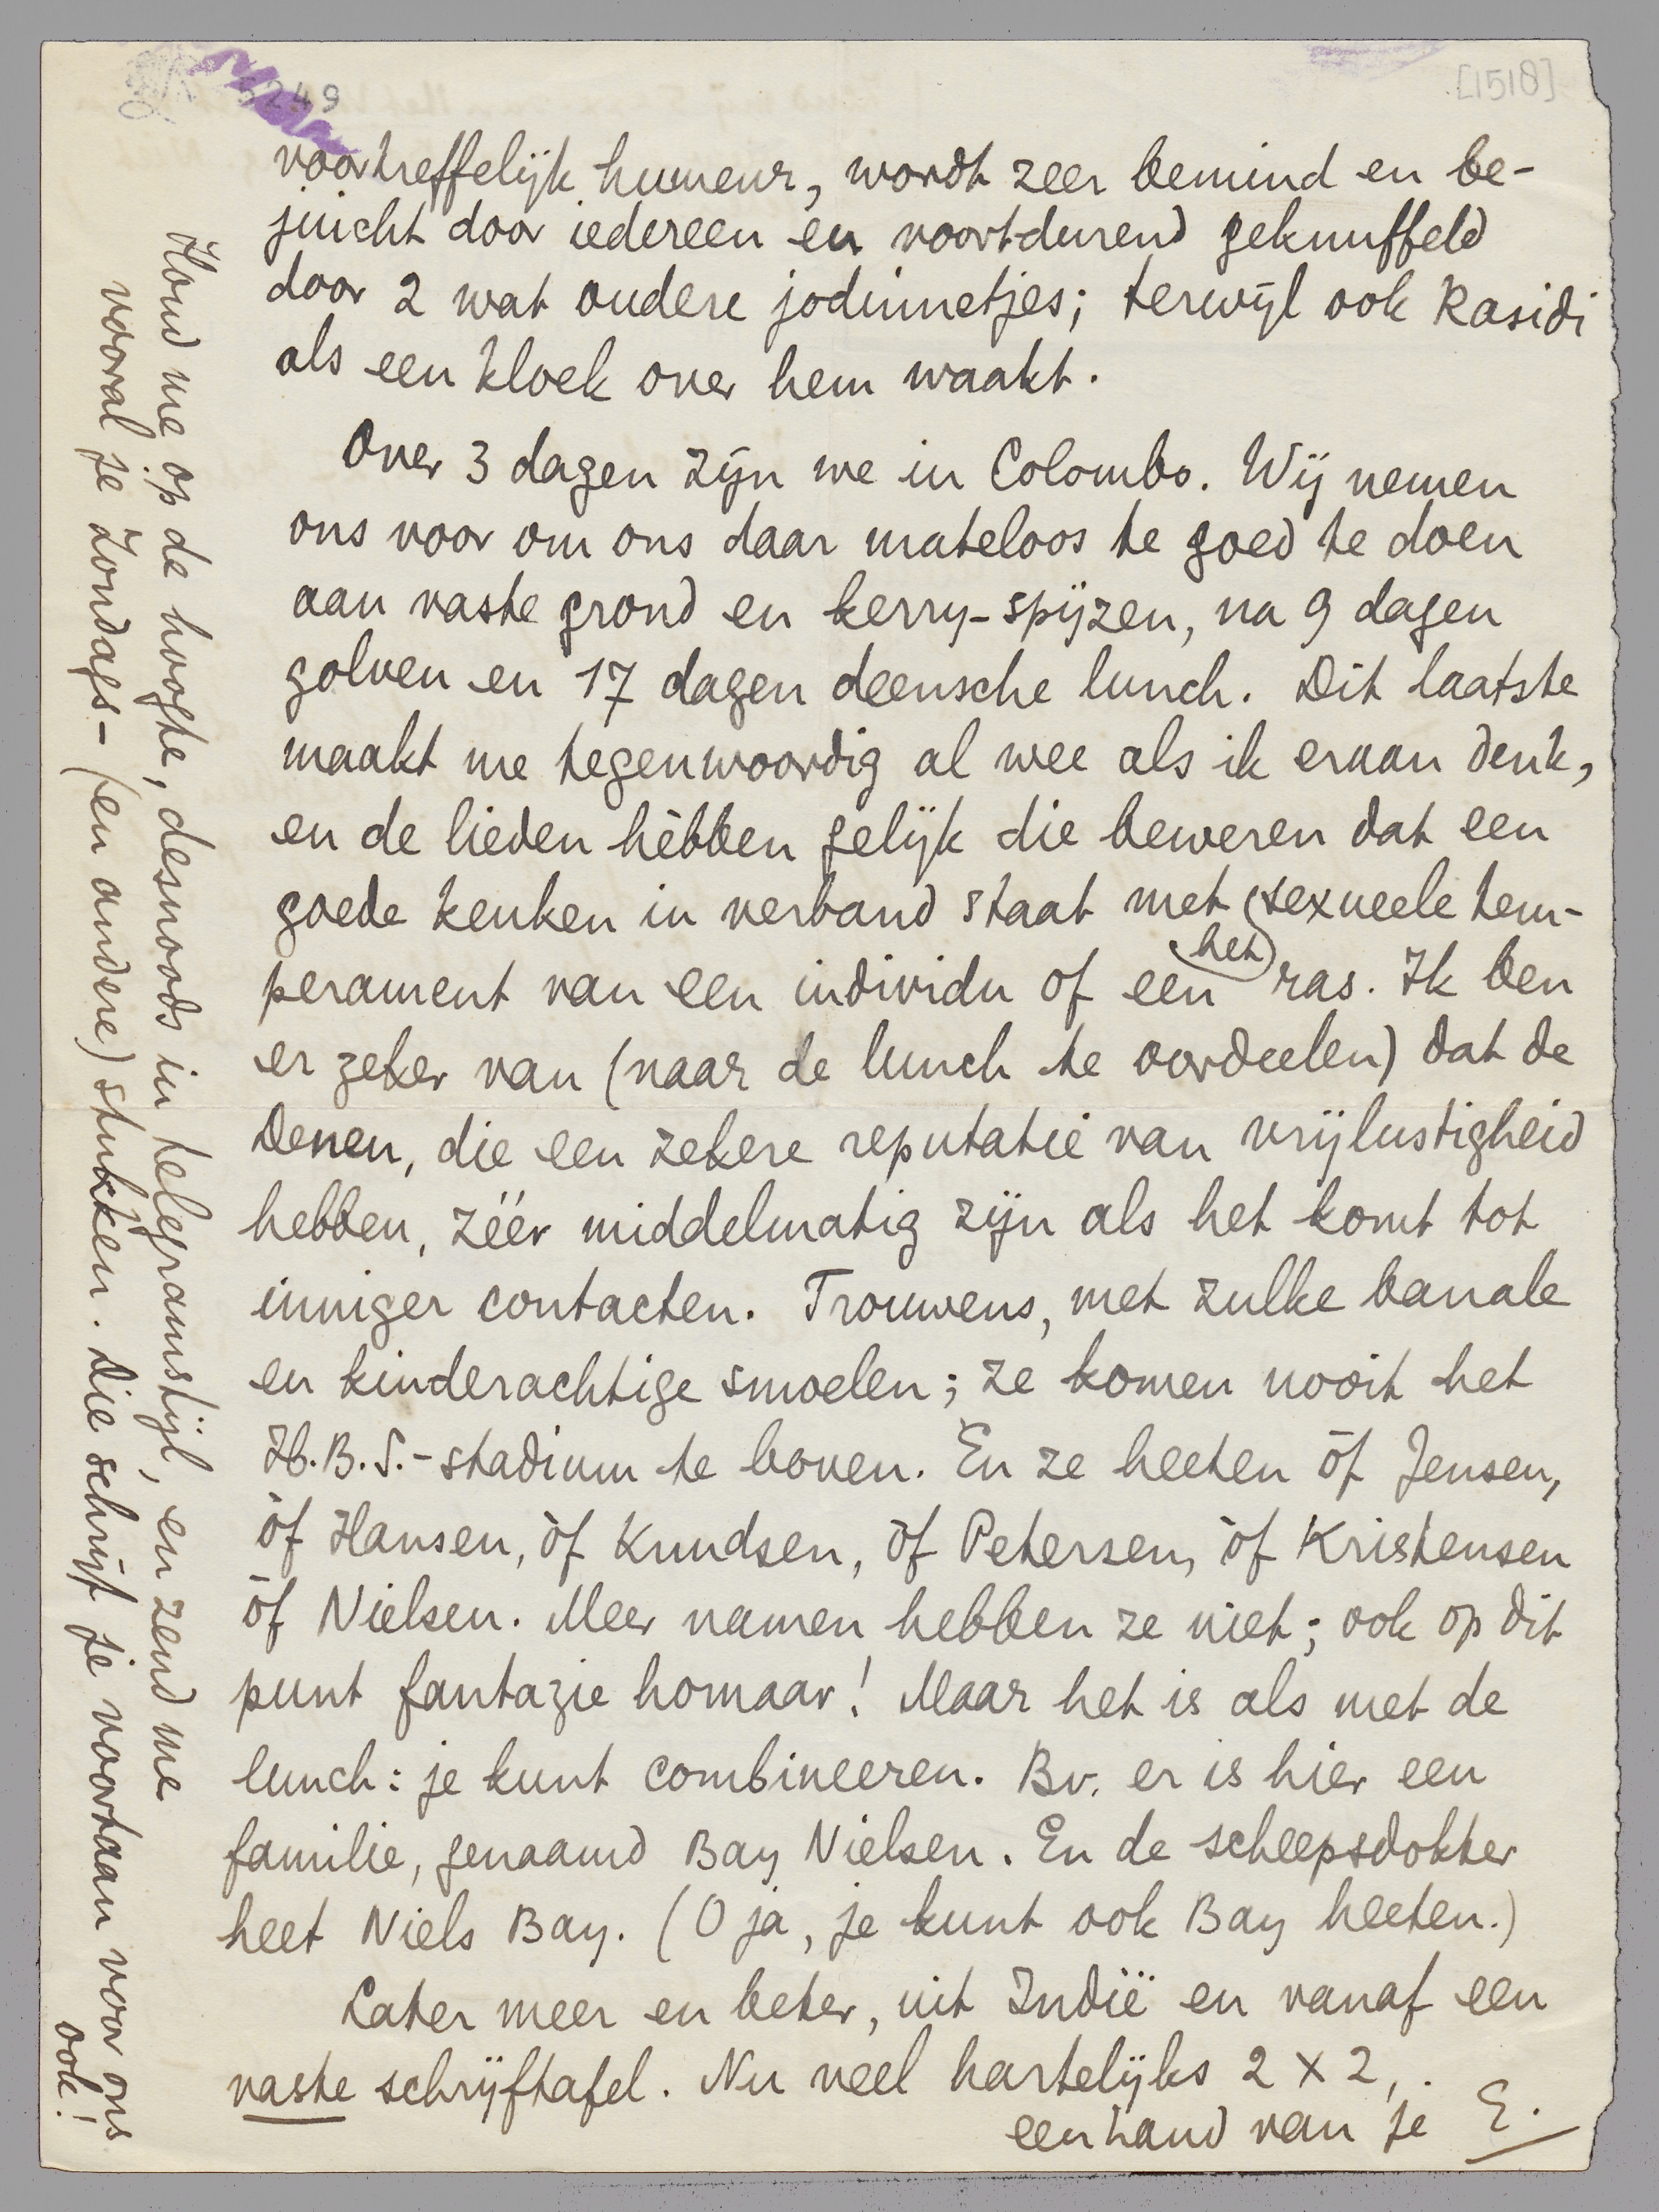 5249
[1518]
voortreffelijk humeur, wordt zeer bemind en be-
juicht door iedereen en voortdurend geknuffeld
door 2 wat oudere jodinnetjes; terwijl ook Rasidi
als een kloek over hem waakt.
Over 3 dagen zijn we in Colombo. Wij nemen
ons voor om ons daar mateloos te goed te doen
aan vaste grond en kerry-spijzen, na 9 dagen
golven en 17 dagen deensche lunch. Dit laatste
maakt me tegenwoordig al wee als ik eraan denk,
en de lieden hèbben gelijk die beweren dat een
goede keuken in verband staat met het sexueele tem-
perament van een individu of een ras. Ik ben
er zeker van (naar de lunch te oordeelen) dat de
Denen, die een zekere reputatie van vrijlustigheid
hebben, zéér middelmatig zijn als het komt tot
inniger contacten. Trouwens, met zulke banale
en kinderachtige smoelen; ze komen nooit het
H.B.S.-stadium te boven. En ze heeten òf Jensen,
òf Hansen, òf Knudsen, òf Petersen, òf Kristensen
òf Nielsen. Meer namen hebben ze niet; ook op dit
punt fantazie homaar! Maar het is als met de
lunch: je kunt combineeren. Bv. er is hier een
familie, genaamd Bay Nielsen. En de scheepsdokter
heet Niels Bay. (O ja, je kunt ook Bay heeten.)
Later meer en beter, uit Indië en vanaf een
vaste schrijftafel. Nu veel hartelijks 2 x 2,
een hand van je E.
Houd me op de hoogte, desnoods in telegramstijl, en zend me
vooral je Zondags- (en andere) stukken. Die schrijf je voortaan voor ons
ook!